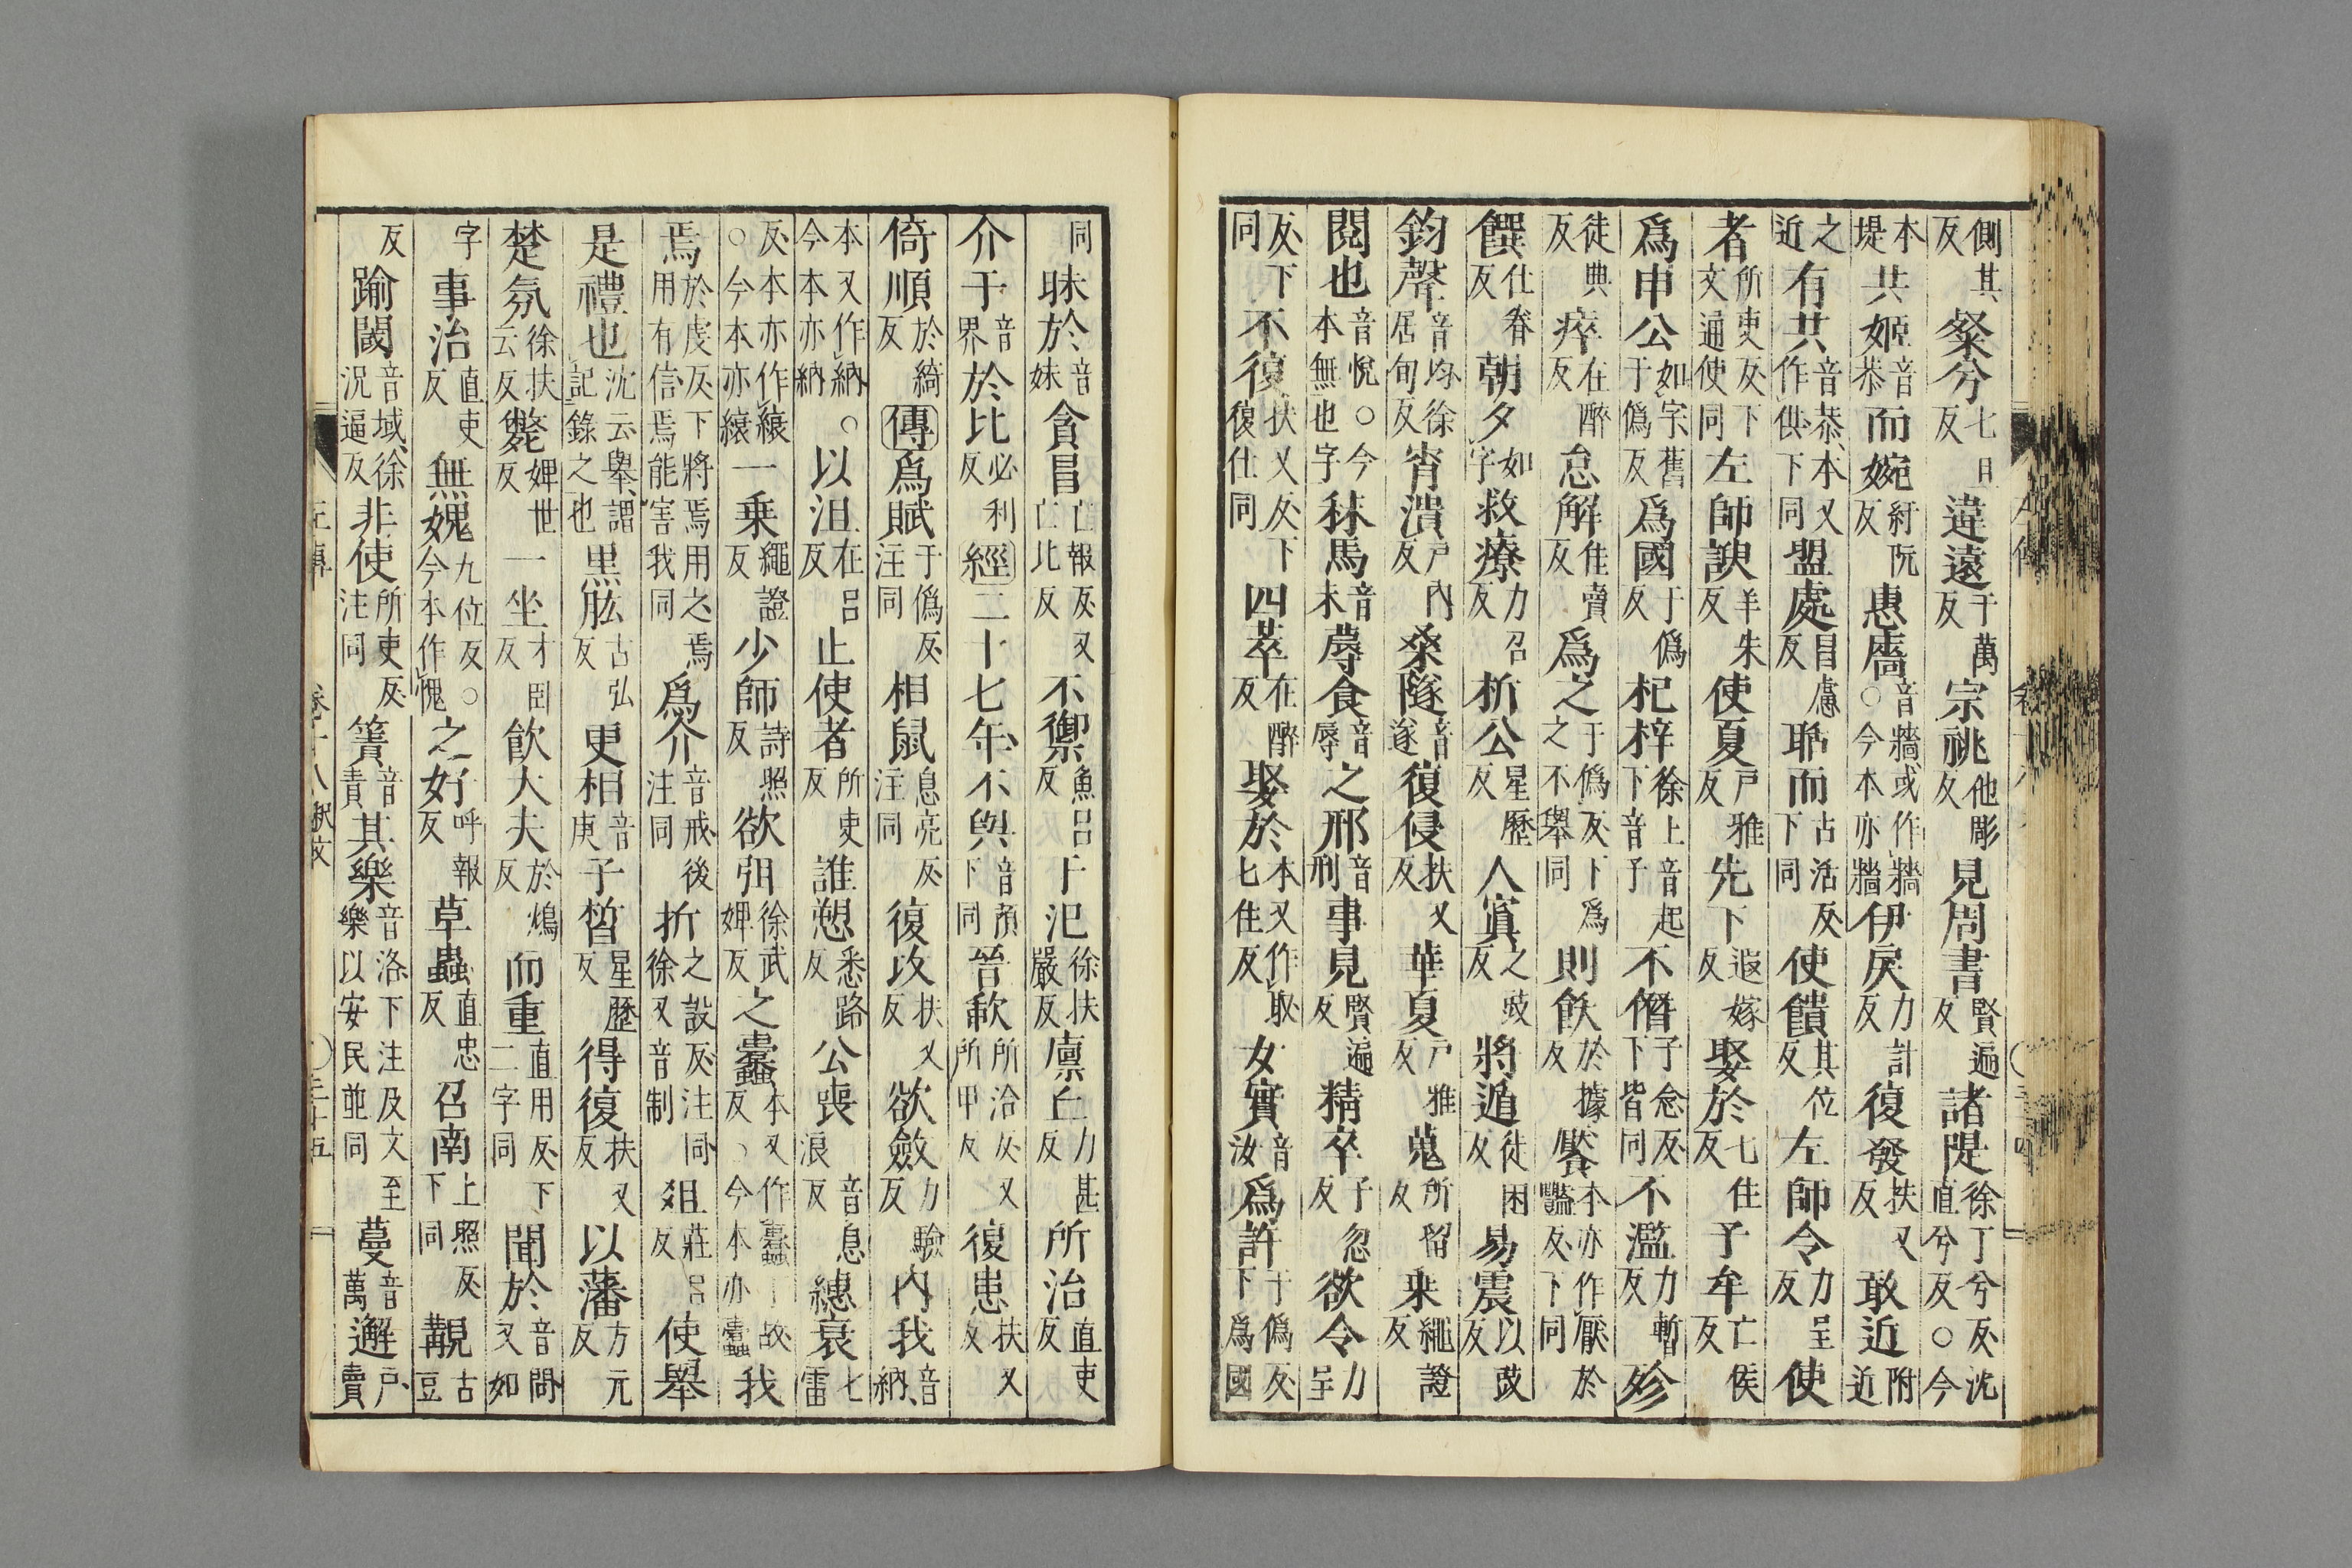 側其反粲兮七旦反違遠于萬反宗祧他彫反見周書賢遍反諸隄徐丁兮反沈直兮反○今
本堤共姬音恭而婉紆阮反惠牆音牆或作牆○今本亦牆伊戾力計反復發扶又反敢近附近
之近有共音恭本又作供下同盟處昌慮反聒而古活反下同使饋其位反左師令力呈反使
者所吏反下文通使同左師諛羊朱反使夏戶雅反先下遐嫁反娶於七住反子牟亡侯反
爲申公如字舊于僞反爲國于僞反杞梓徐上音起下音子不僭子念反下皆同不濫力暫反殄
徒典反瘁在醉反怠解佳賣反爲之于僞反下爲之不舉同則飫於據反饜本亦作厭於豔反下同
饌仕眷反朝夕如字救療力召反析公星歷反人寘之豉反將遁徒困反易震以豉反
鈞聲音均徐居旬反宵潰戶內反桑隧音遂復侵扶又反華夏戶雅反蒐所留反乗繩證反
閱也音悅○今本無也字秣馬音末蓐食音辱之邢音刑事見賢遍反精卒子忽反欲令力呈
反下同不復扶又反下復仕同四萃在醉反娶於本又作取七住反女實音汝爲許于僞反下爲國
同昧於音妹貪冒亡報反又亡比反不禦魚呂反于汜徐扶嚴反廩丘力甚反所治直吏反
介于音界於比必利反經二十七年不與音預下同晉歃所洽反又所甲反復患扶又反
倚順於綺反傳爲賦于僞反注同相鼠息亮反注同復攻扶又反欲斂力驗反內我音納
本又作納○今本亦納以沮在呂反止使者所吏反誰愬悉路反公喪息浪反音總衰七雷
反本亦作縗○今本亦縗一乗繩證反少師詩照反欲弭徐武婢反之蠹本又作蠧丁故反○今本亦蠹我
焉於虔反下將焉用之焉用有信焉能害我同爲介音戒後注同折之設反注同徐又音制俎莊呂反使舉
是禮也沈云舉謂記錄之也黑肱古弘反更相音庚子晳星歷反得復扶又反以藩方元反
楚氛徐扶云反斃婢世反一坐才臥反飲大夫於鴆反而重直用反下二字同聞於音問又如
字事治直吏反無媿九位反○今本作愧之好呼報反草蟲直忠反召南上照反下同覯古豆
反踰閾音域徐況逼反非使所吏反注同簀音責其樂音洛下注及文至樂以安民並同蔓音萬邂戶賣